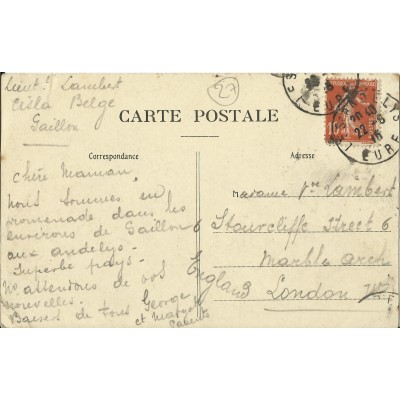 Lieut. Lambert
Belge
Gaillon
27
CARTE POSTALE
Correspondance
Adresse
Chère Maman,
nous sommes en
promenade dans les
environs de Gaillon
aux andelys.
Superbe pays.
attendons de vos
nouvelles.
Baisers de tous George
et
Madame Lambert
Street 6
Marble arch
London W
England
EURE
10